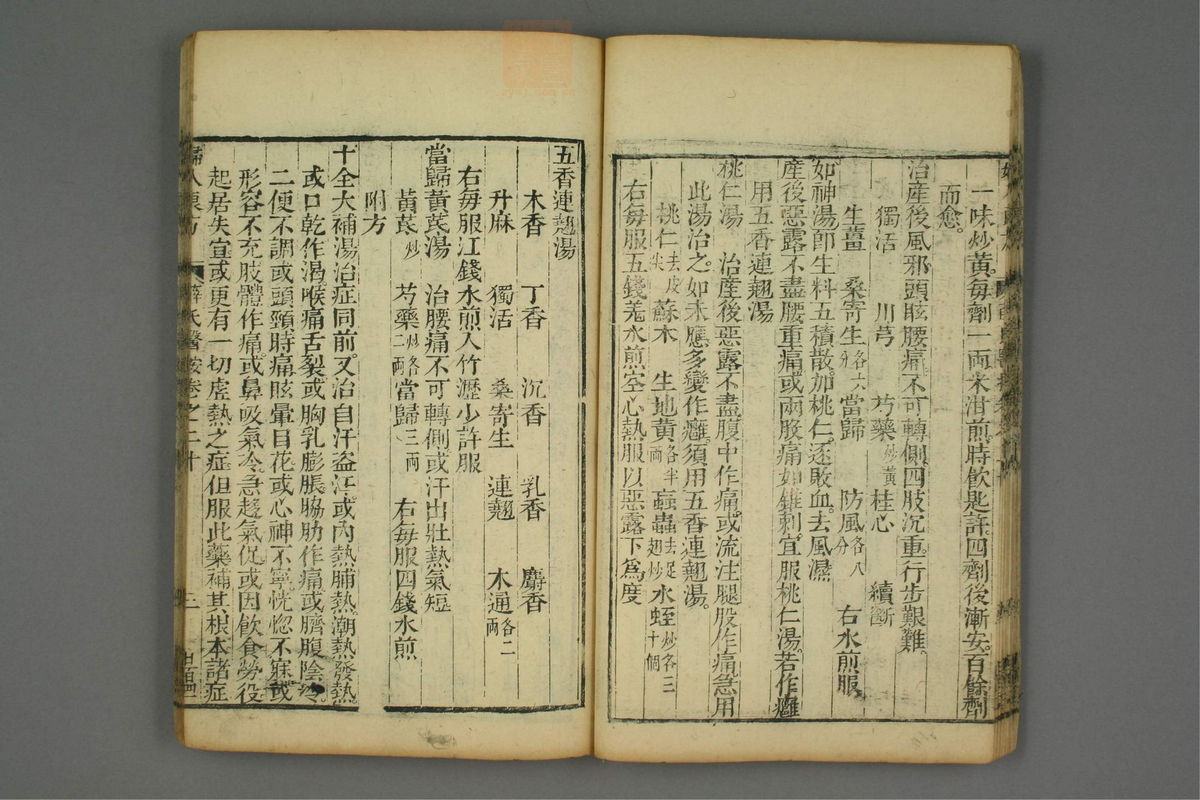 一味炒黃每劑一兩米泔煎時飲匙許四劑後漸安百餘劑
而愈。
治產後風邪頭眩腰痛不可轉側四肢沉重行步艱難。
獨活 川芎 芍藥炒黃 桂心 續斷
生薑 桑寄生各六分 當歸 防風各八分 右水煎服
如神湯即生料五積散加桃仁逐敗血去風濕
產後惡露不盡腰重痛或兩股痛如錐刺宜服桃仁湯若作癰
用五香連翹湯
桃仁湯 治產後惡露不盡腹中作痛或流注腿股作痛急用
此湯治之如未應多變作癰須用五香連翹湯。
桃仁去皮尖 蘇木 生地黃各半兩 蝱蟲去足翅炒 水蛭炒各三十個
右每服五錢羌水煎空心熱服以惡露下爲度
五香連翹湯
木香 丁香 沉香 乳香 麝香
升麻 獨活 桑寄生 連翹 木通各二兩
右每服江錢水煎入竹瀝少許服
當歸黃芪湯 治腰痛不可轉側或汗出壯熱氣短
黃芪炒 芍藥炒各二兩 當歸三兩 右每服四錢水煎
附方
十全大補湯治症同前又治自汗盗汗或內熱晡熱潮熱發熱
或口乾作渴喉痛舌裂或胸乳膨脹脇肋作痛或臍腹陰冷
二便不調或頭頸時痛眩暈目花或心神不寧恍惚不寐或
形容不充肢體作痛或鼻吸氣冷急趨氣促或因飲食勞役
起居失宜或更有一切虗熱之症但服此藥補其根本諸症
婦人良方 薛氏醫按卷之二十 三